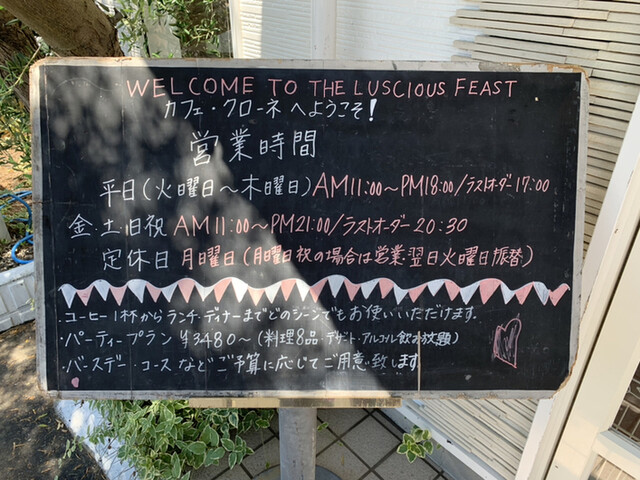 WELCOME TO THE LUSCIOUS FEAST
カフェ・クローネへようこそ!
営業時間
平日(火曜日〜木曜日)AM11:00〜PM18:00/ラストオーダー17:00
金・土・日祝 AM11:00〜PM21:00/ラストオーダー20:30
定休日 月曜日(月曜日祝の場合は営業翌日火曜日振替)
・コーヒー1杯からランチ・ディナーまでどのシーンでもお使いいただけます。
・パーティープラン ¥3480〜(料理8品・デザート・アルコール飲み放題)
・バースデー・コースなどご予算に応じてご用意致します。